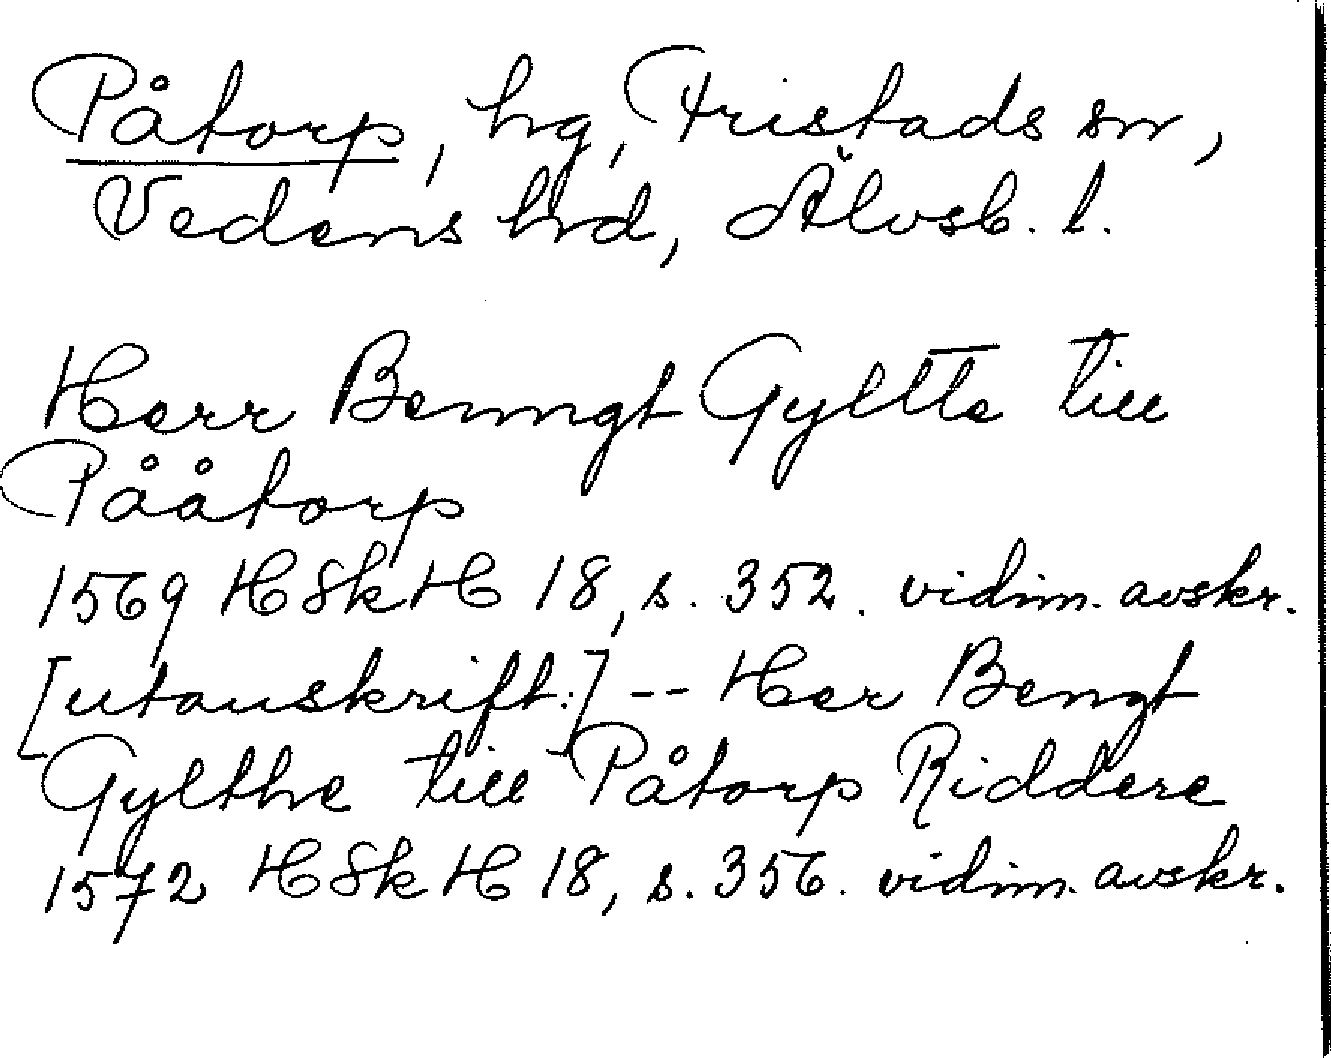 Påtorp, hg, Fristads sn,
Vedens hrd, Älvsb. l.
Herr Benngt Gyltte till
Pååtorp
1569 HSkH 18, s. 352. vidim. avskr.
[utanskrift:] -- Her Bengt
Gylthe till Påtorp Riddere
1572 HSkH 18, s. 356. vidim. avskr.